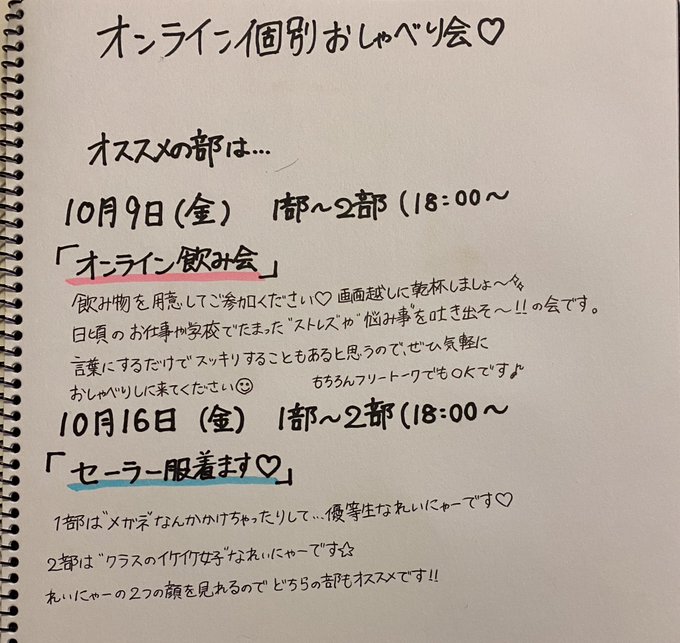 オンライン個別おしゃべり会♡
オススメの部は…
10月9日(金) 1部〜2部(18:00〜
「オンライン飲み会」
飲み物を用意してご参加ください♡ 画面越しに乾杯しましょ〜✨
日頃のお仕事や学校でたまった"ストレス"や"悩み事"を吐き出そ〜!!の会です。
言葉にするだけでスッキリすることもあると思うので、ぜひ気軽に
おしゃべりしに来てください☺ もちろんフリートークでもOKです♪
10月16日(金) 1部〜2部(18:00〜
「セーラー服着ます♡」
1部は"メガネ"なんかかけちゃったりして…優等生なれいにゃーです♡
2部は"クラスのイケイケ女子"なれいにゃーです☆
れいにゃーの2つの顔を見れるのでどちらの部もオススメです!!